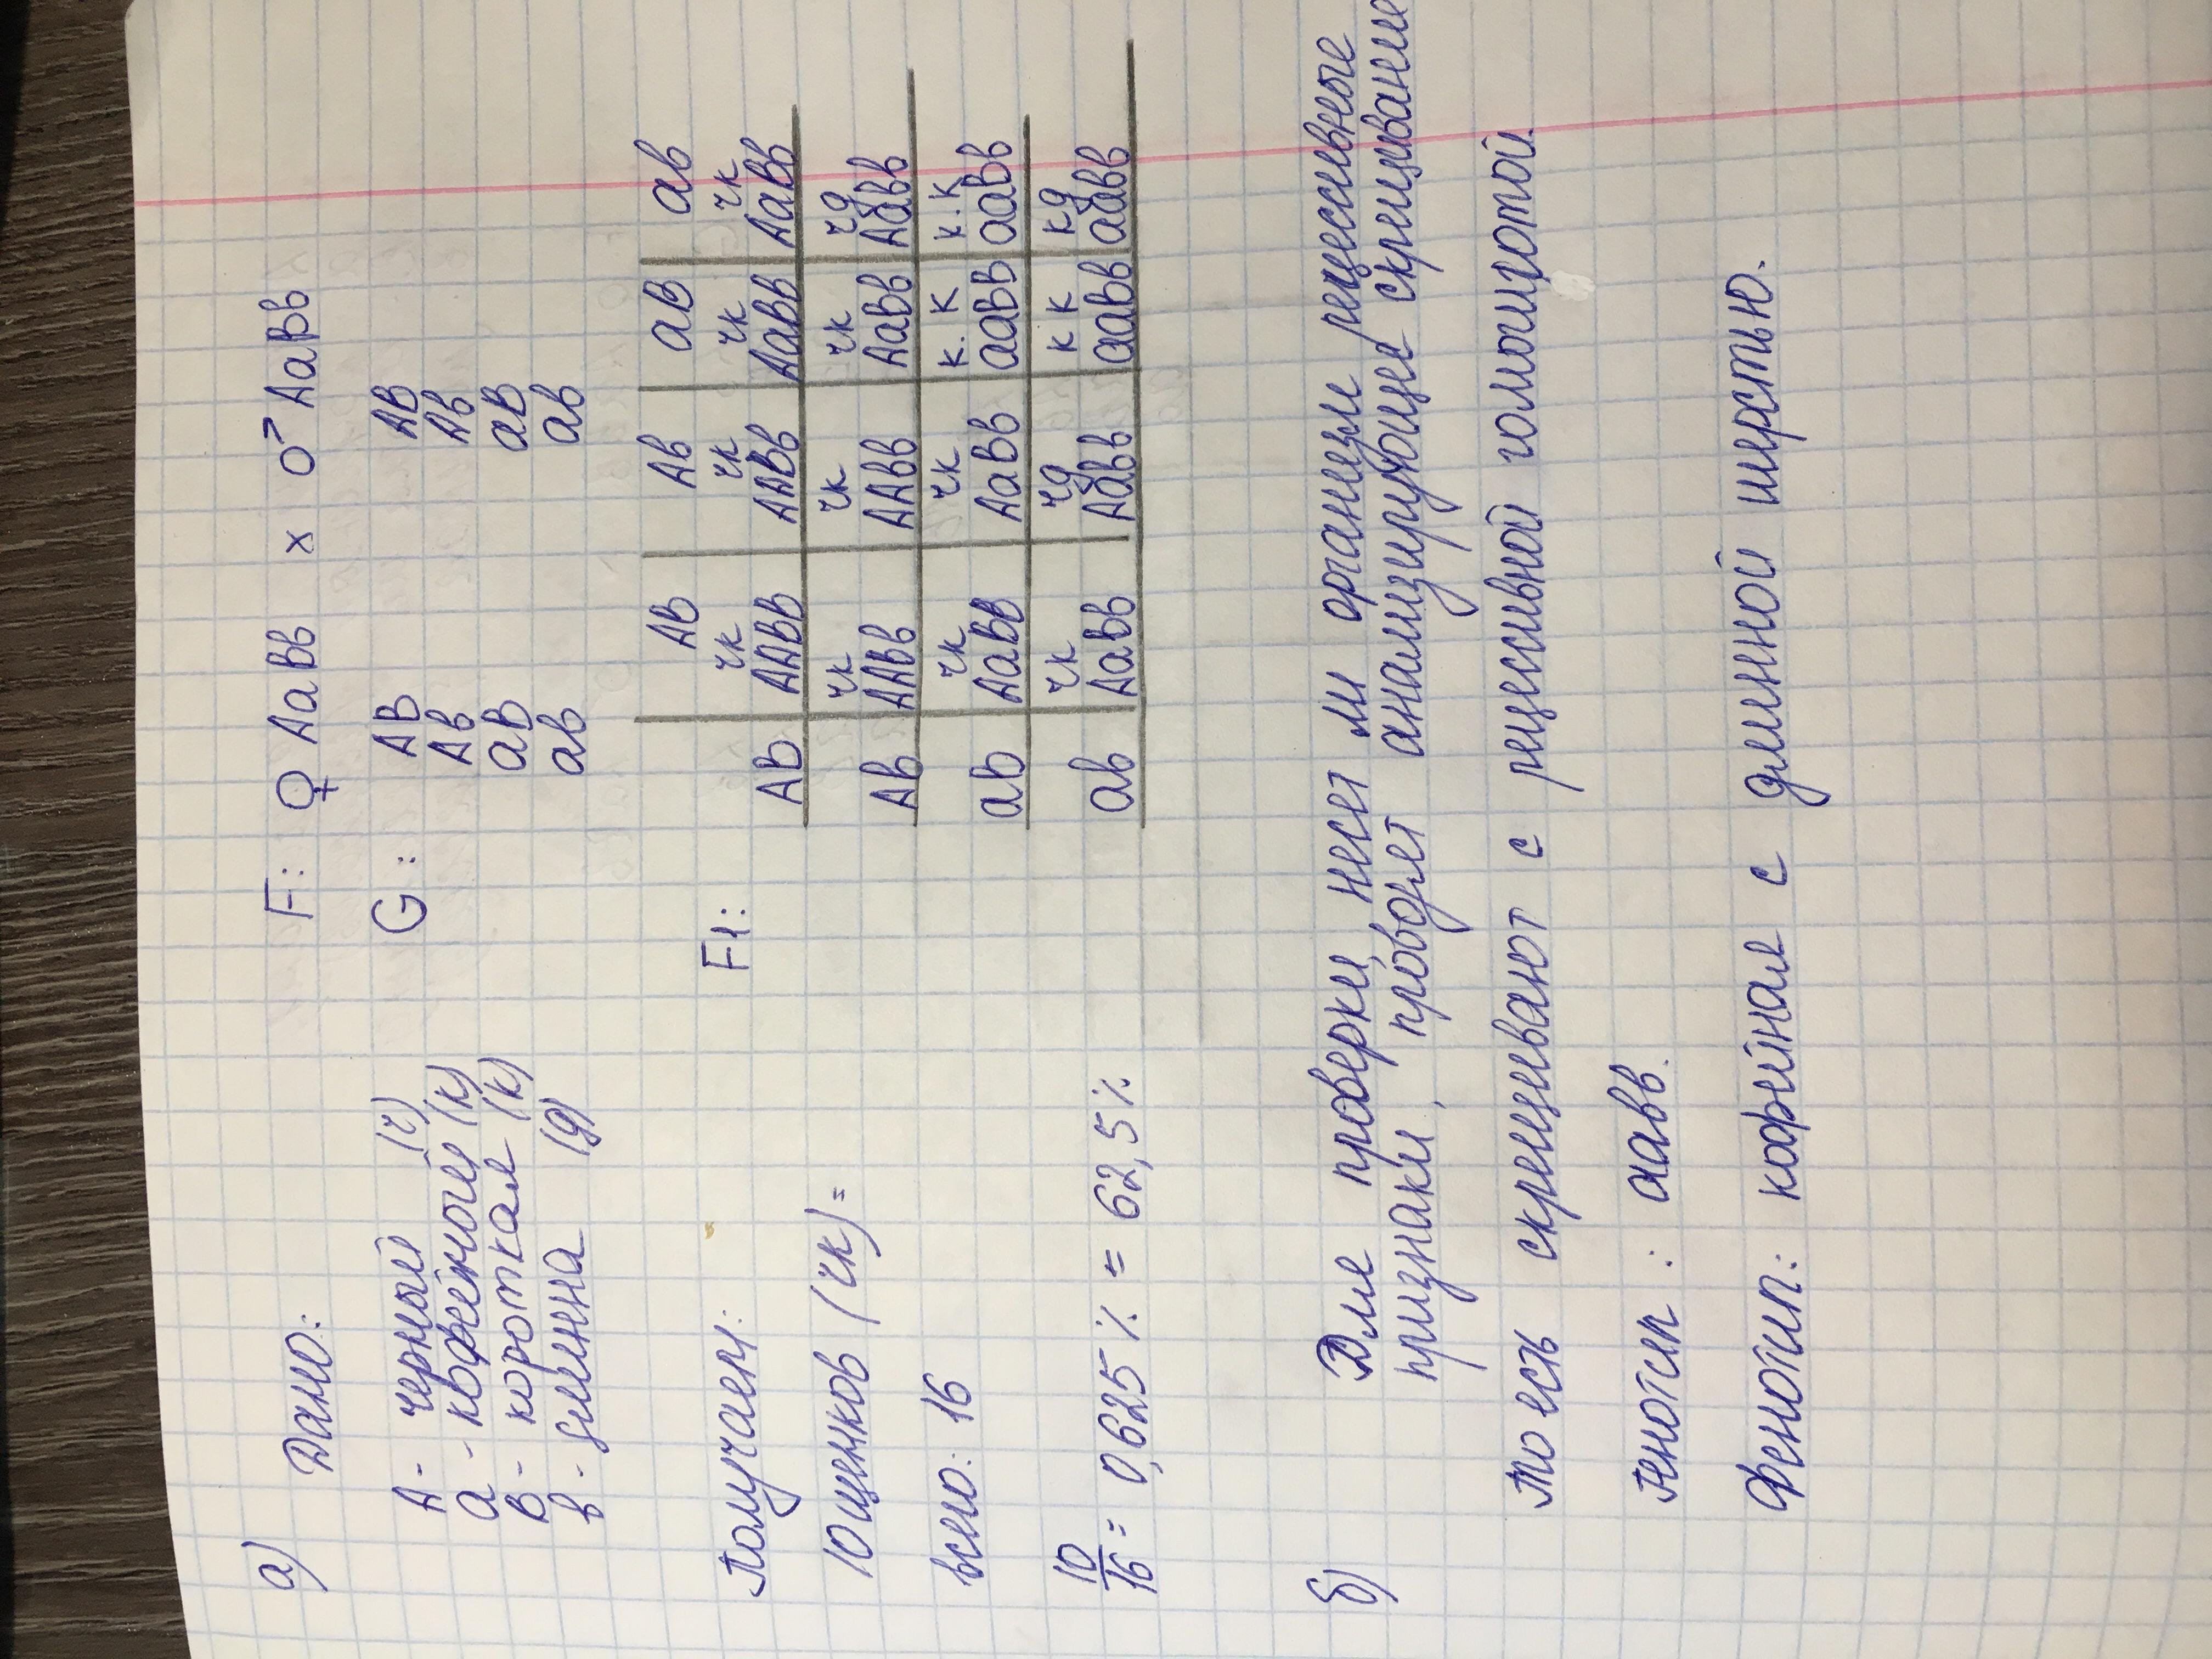 а)
Дано:
А - черный (ч)
а - кофейный (к)
В - короткая (к)
в - длинна (д)
F: ♀ АаВв х ♂ АаВв
G: АВ АВ
Ав Ав
аВ аВ
ав ав
Получаем:
10 щенков (чк) =
всего: 16
10/16 = 0,625 % = 62,5 %
F1:
АВ Ав аВ ав
чк чк чк чк
АВ ААВВ ААВв АаВВ АаВв
чк чк чк чд
Ав ААВв ААВв АаВВ Аавв
чк чк к. к к.к
ав АаВВ АаВв ааВВ ааВв
чк чд к к кд
ав АаВв Аавв ааВв аавв
б)
Для проверки, несет ли организм рецессивные
признаки, проводят анализирующее скрещивание
То есть скрещивают с рецессивной гомозиготой.
Генотип: аавв.
Фенотип: кофейная с длинной шерстью.